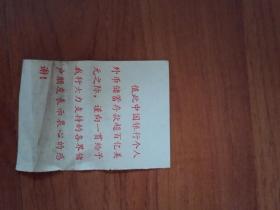 值此中国银行个人
外币储蓄存款超百亿美
元之际，谨向一贯给予
我行大力支持的各界储
户朋友表示衷心的感
谢！